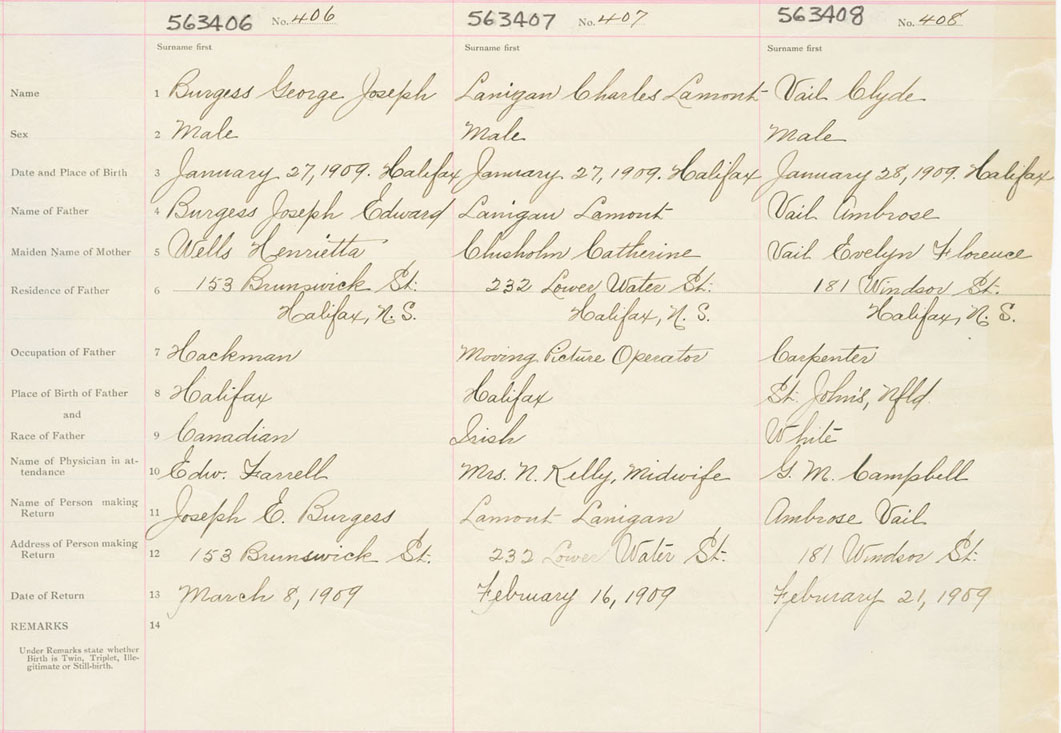 563406 No. 406 563407 No. 407 563408 No. 408
Surname first Surname first Surname first
Name 1 Burgess George Joseph Lanigan Charles Lamont Vail Clyde
Sex 2 Male Male Male
Date and Place of Birth 3 January 27, 1909. Halifax January 27, 1909. Halifax January 28, 1909. Halifax
Name of Father 4 Burgess Joseph Edward Lanigan Lamont Vail Ambrose
Maiden Name of Mother 5 Wells Henrietta Chisholm Catherine Vail Evelyn Florence
Residence of Father 6 153 Brunswick St. 232 Lower Water St. 181 Windsor St.
Halifax, N. S. Halifax, N. S. Halifax, N. S.
Occupation of Father 7 Hackman Moving Picture Operator Carpenter
Place of Birth of Father 8 Halifax Halifax St. John's, Nfld.
and
Race of Father 9 Canadian Irish White
Name of Physician in at-
tendance 10 Edw. Farrell Mrs. N. Kelly, Midwife G. M. Campbell
Name of Person making
Return 11 Joseph E. Burgess Lamont Lanigan Ambrose Vail
Address of Person making
Return 12 153 Brunswick St. 232 Lower Water St. 181 Windsor St.
Date of Return 13 March 8, 1909 February 16, 1909 February 21, 1909
REMARKS 14
Under Remarks state whether
Birth is Twin, Triplet, Ille-
gitimate or Still-birth.